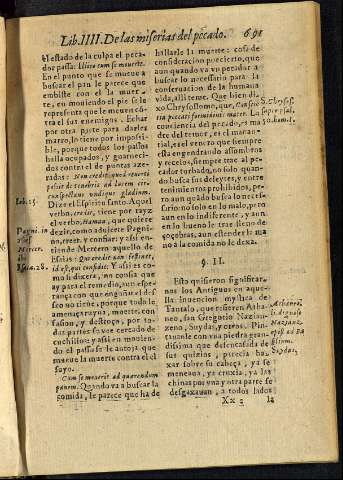 Lib. IIII. De las miserias del pecado. 691
el estado de la culpa el peca-
dor passa: Illico cum se mouerit.
En el punto que se mueue a
buscar el pan le parece que
embiste con el la muer-
te, en mouiendo el pie se le
representa que le mueuen có-
tra el sus enemigos. Echar
por otra parte para darles
marro, lo tiene por impossi-
ble, porque todos los passos
halla ocupados, y guarneci-
dos contra el de puntas aze-
radas: Non credit quod reuerti
possit de tenebris ad lucem cir-
cunspectans vndique gladium.
Dize el Espiritu santo. Aquel
verbo, credit, tiene por rayz
el verbo, Haman, que quiere
dezir, como aduierte Pagni-
no, creer, y confiar: y assi en-
tiende Mercero aquello de
Esaias: Qui credit non festinet,
id est, qui confidit: Y assi es co-
mo si dixera, no confia que
ay para el remedio, aun espe-
rança con que engañar el des-
seo no tiene, porque todo le
amenaza ruyna, muerte, con
fusion, y destroço, por to-
das partes se vee cercado de
cuchillos: y assi en mouien-
do el passo se le antoja que
mueue la muerte contra el el
suyo.
Cum se mouerit ad quærendum
panem. Quando va a buscar la
comida, le parece que ha de
Iob. 15.
Pagni. in
Mercer.
ibi
Esaiæ. 28.
hallarle la muerte: cosa de
consideracion puecierto, que
aun quando va vn pecador a
buscar lo necessario para la
conseruacion de la humana
vida, alli teme. Que bien di-
xo Chrysostomo, que,
conciencia del pecado, es ma
dre del temor, es el manan-
tial, es el venero que siempre
esta engendando assombros
y recelos, siempre trae al pe-
cador turbado, no solo quan-
do busca sus deleytes, y entre
tenimientos prohibidos, pe-
ro aun quãdo busca lo neces-
sario: no solo en lo malo, pero
aun en lo indiferente, y aun
en lo bueno le trae lleno de
çoçobras, aun estender la ma
no a la comida no le dexa.
§. II.
Esto quisieron significar-
nos los Antiguos en aque-
lla inuencion mystica de
Tantalo, que refieren Athe-
neo, san Gregorio Nazian-
zeno, Suydas, y otros. Pin-
tauanle con vna piedra gran-
dissima que defencasada de
sus quizios, parecia ba-
xar sobre su cabeça, ya se
meneaua, ya cruxia, ya las
chinas por vna y otra parte se
desgaxauan, a todos lados
Xx 3 la
S. Chrysos.
Nazanz.
Suydas,